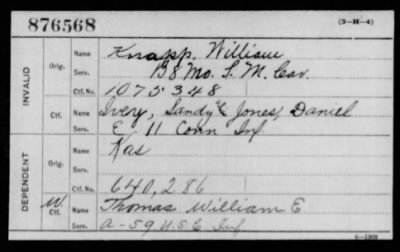 876568 (3-H-4)
INVALID
Orig. Name Knapp, William
Serv. B 8 Mo. S. M. Cav.
Ctf. No. 1075348
Ctf. Name Ivery, Sandy & Jones, Daniel
Serv. E 11 Conn Inf.
DEPENDENT
Orig. Name Kas
Serv.
Ctf. No. 640,286
W Ctf. Name Thomas William E
Serv. A-59 U.S.C. Inf